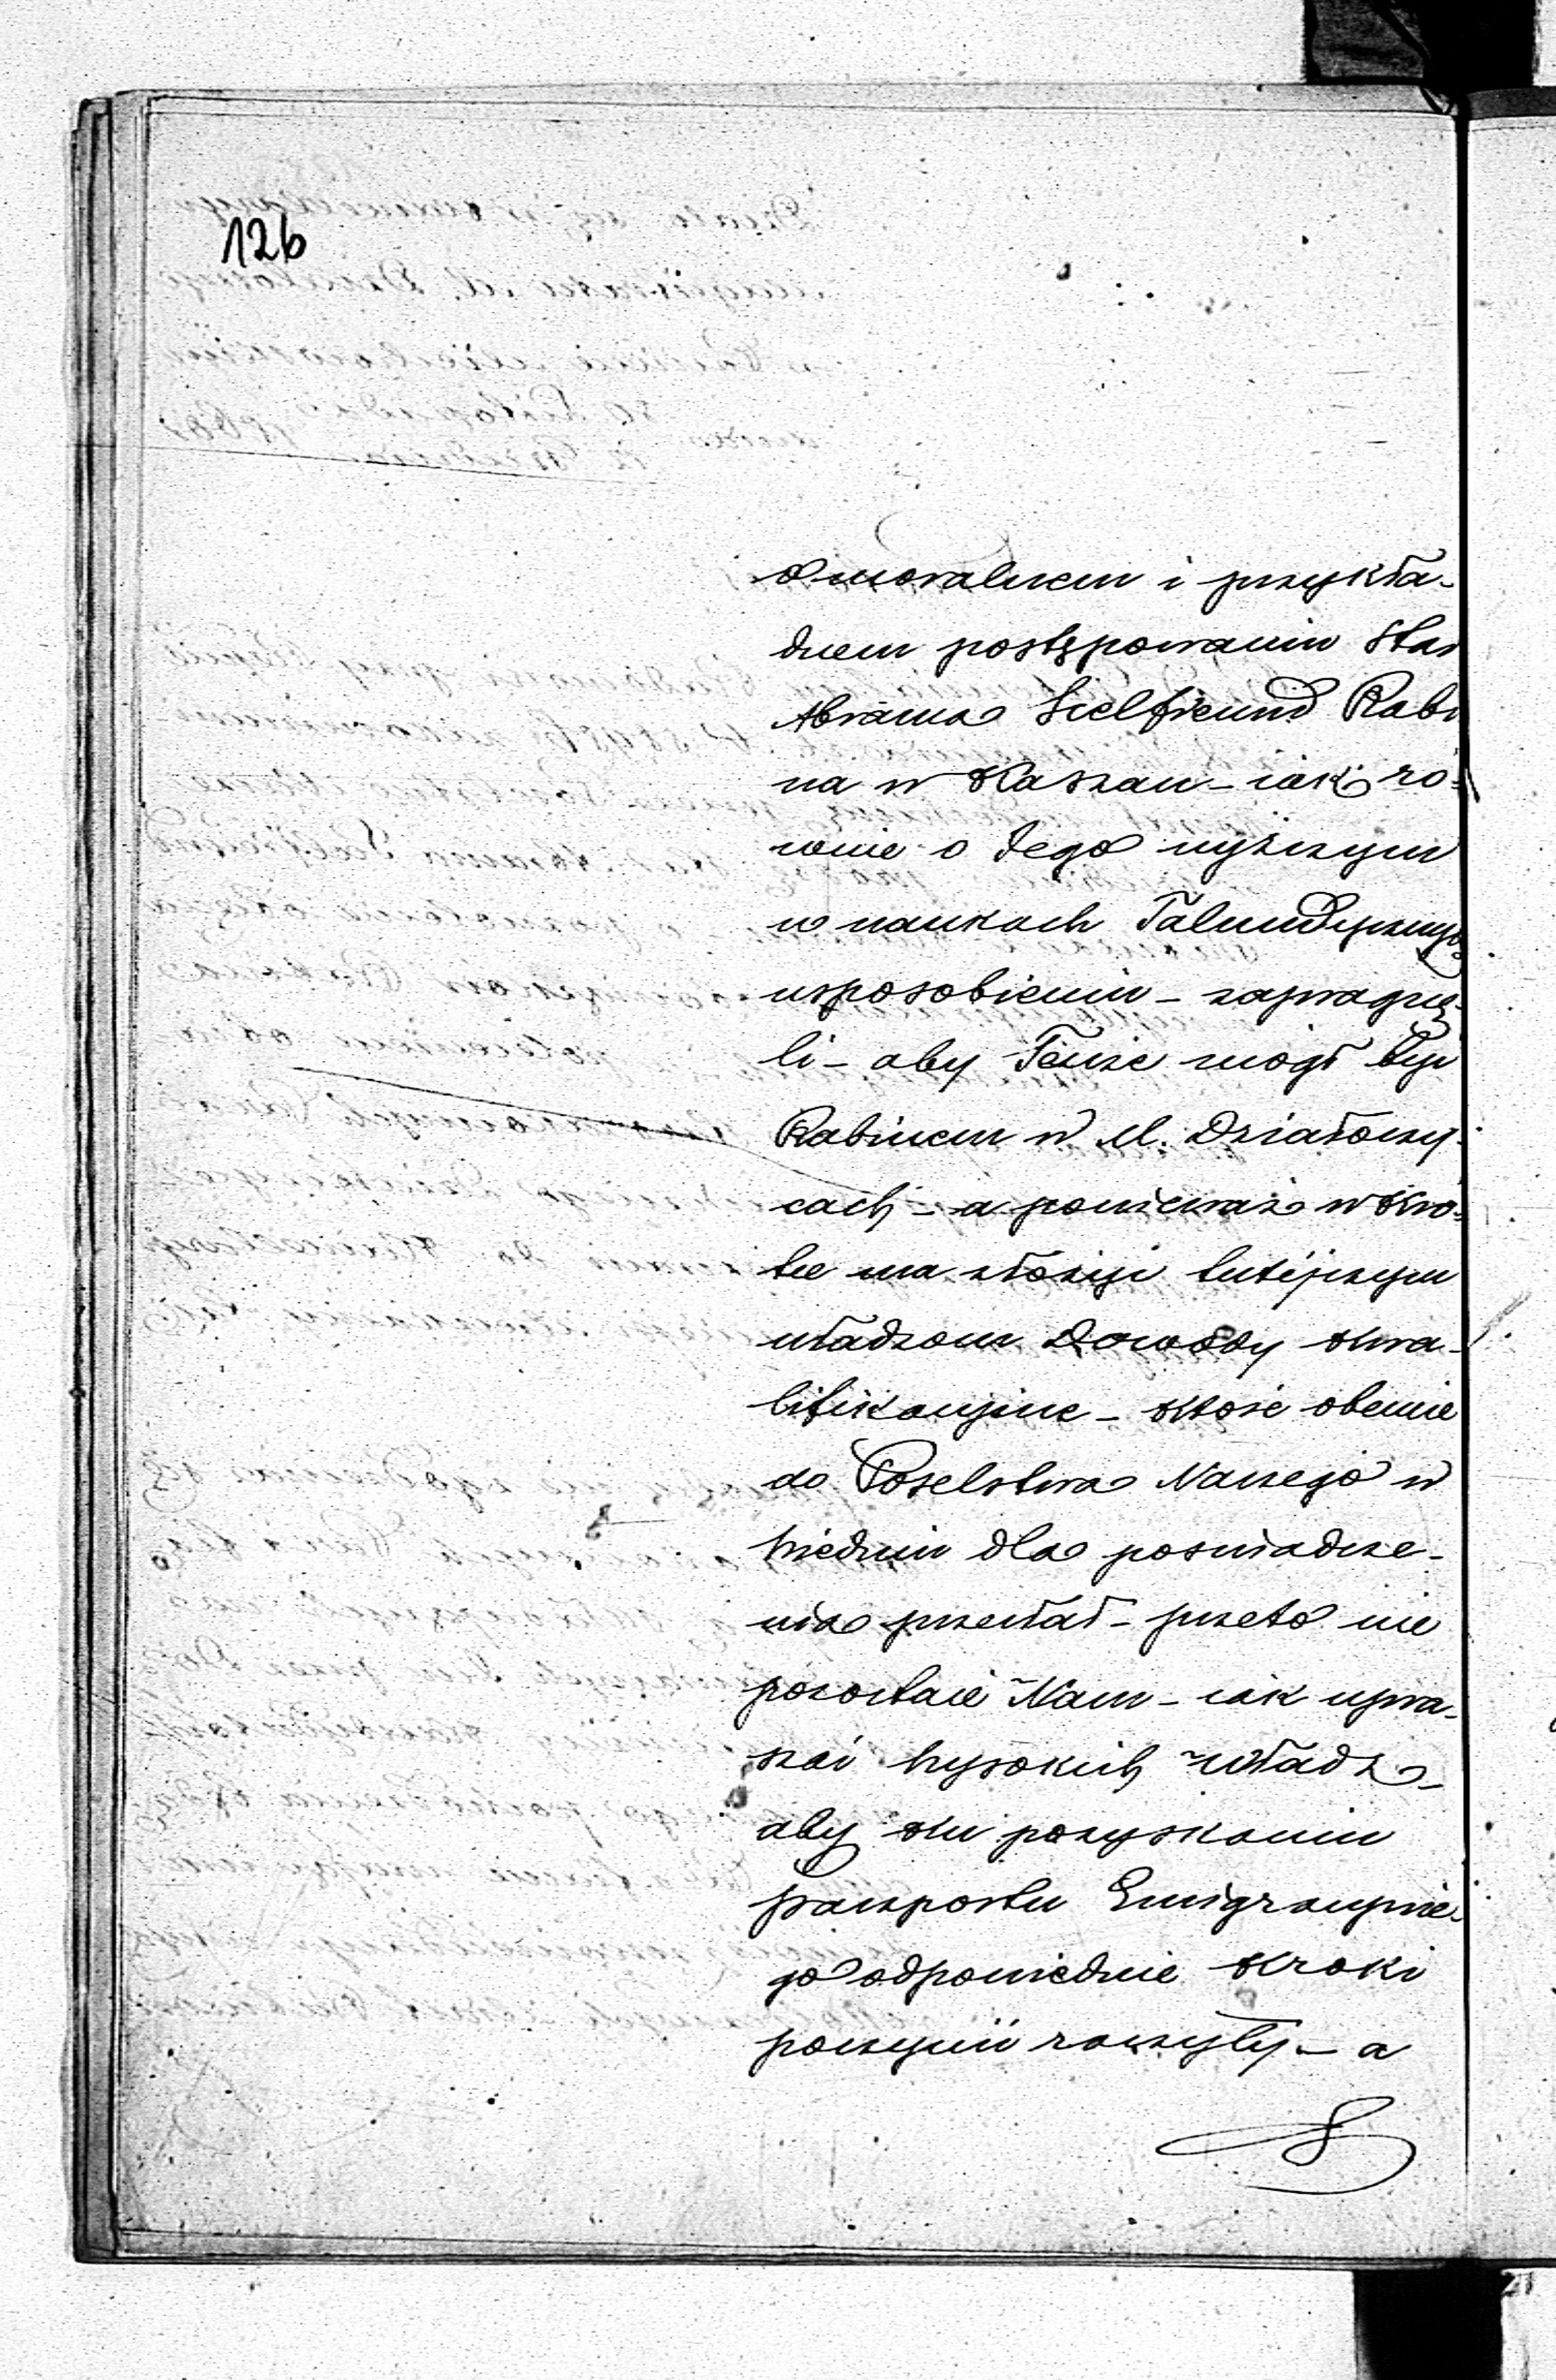 126
o moralnem i przykła-
dnem postępowaniu Star
Abrama Sielfreund Rabi
na w Kaszau - iak ró-
wnie o Jego wyższym
w naukach Talmudyczny
usposobieniu - zapragnę-
li - aby Tenże mógł być
Rabinem w M. Działoszy-
cach - a ponieważ w Kró-
tce ma złożyć tutéjszym
władzom Dowody kwa-
lifikacyjne - które obecnie
do Poselstwa Naszego w
Wiedniu dla poswiadcze-
nia przesłał - przeto nie
pozostaie Nam - iak upra-
szać Wysokich Władz -
aby ku pozyskaniu
Paszportu Emigracyjne-
go odpowiednie kroki
poczynić raczyły - a